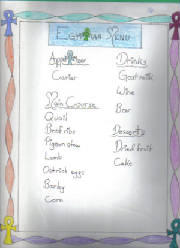 Egyptian Menu
Appetizer
Caviar
Main Course
Quail
Beef ribs
Pigeon stew
Lamb
Ostrich eggs
Barley
Corn
Drinks
Goat milk
Wine
Beer
Desserts
Dried fruit
Cake